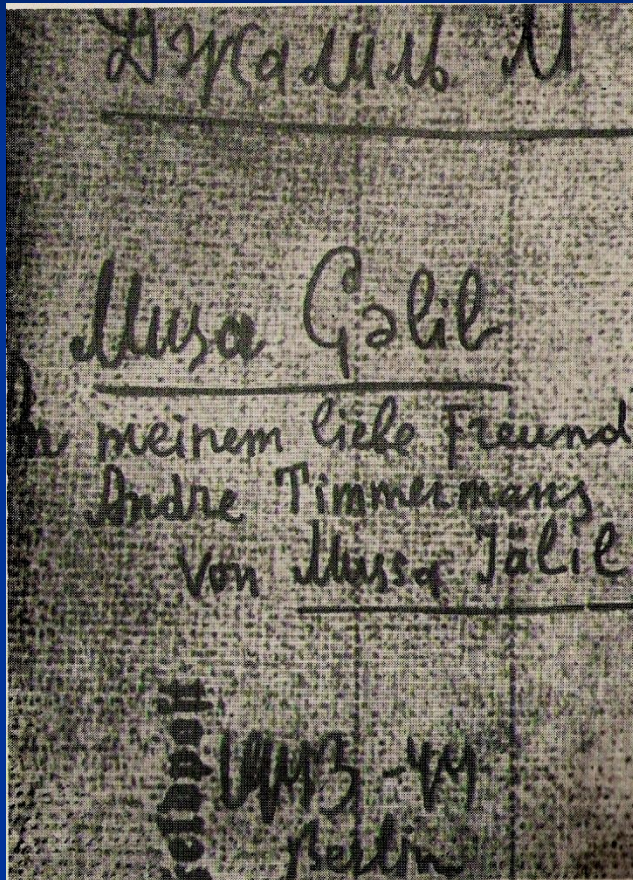 Джалиль М
Musa Gəlil
meinem liebe Freund
Andre Timmermans
von Mussa Jälil
1943-44
Berlin